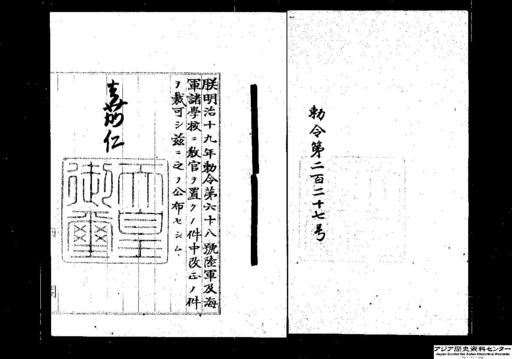 勅令第二百二十七号
朕明治十九年勅令第六十八號陸軍及海
軍諸學校ニ教官ヲ置クノ件中改正ノ件
ヲ裁可シ茲ニ之ヲ公布セシム
嘉仁
天皇
御璽
アジア歴史資料センター
Japan Center for Asian Historical Records